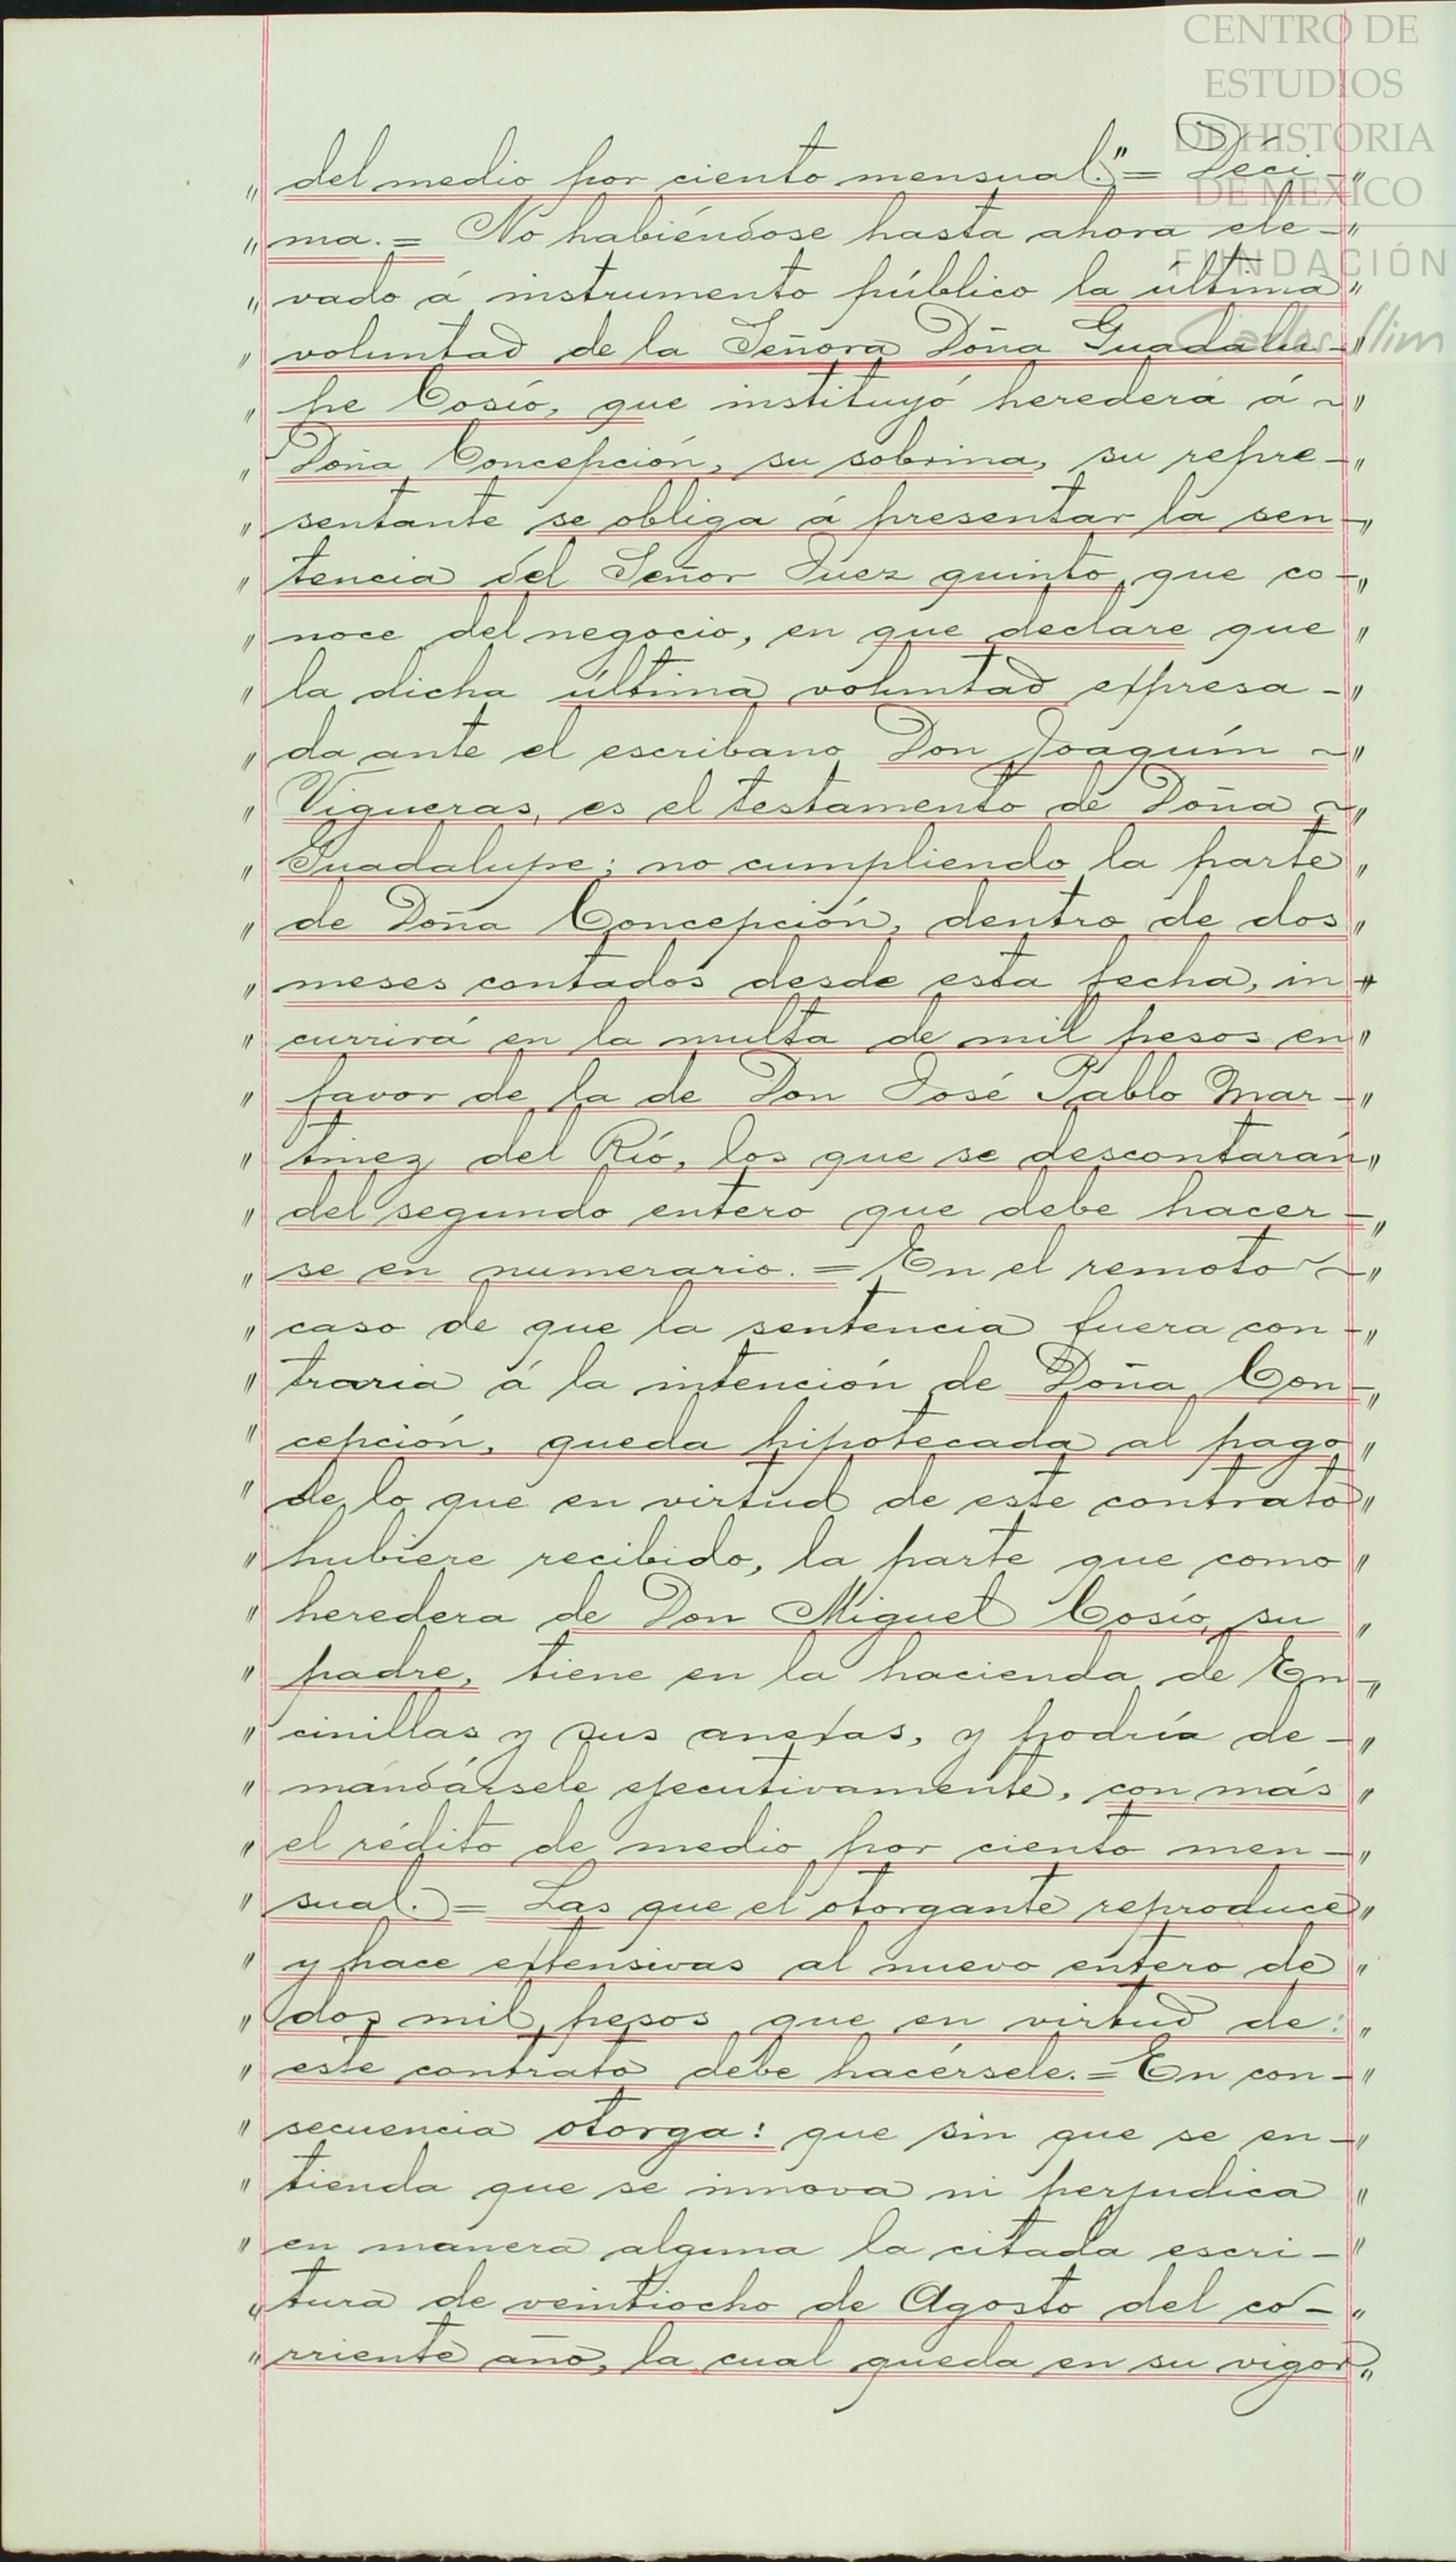 CENTRO DE
ESTUDIOS
DE HISTORIA
DE MÉXICO
FUNDACIÓN
Carlos Slim
" del medio por ciento mensual." = Déci- "
" ma. = No habiéndose hasta ahora ele- "
" vado á instrumento público la última "
" voluntad de la Señora Doña Guadalu- "
" pe Cosío, que instituyó heredera á ~ "
" Doña Concepción, su sobrina, su repre- "
" sentante se obliga á presentar la sen- "
" tencia del Señor Juez quinto que co- "
" noce del negocio, en que declare que "
" la dicha última voluntad expresa- "
" da ante el escribano Don Joaquín ~ "
" Vigueras, es el testamento de Doña ~ "
" Guadalupe; no cumpliendo la parte "
" de Doña Concepción, dentro de dos "
" meses contados desde esta fecha, in- "
" currirá en la multa de mil pesos en "
" favor de la de Don José Pablo Mar- "
" tinez del Río, los que se descontarán "
" del segundo entero que debe hacer- "
" se en numerario. = En el remoto ~ "
" caso de que la sentencia fuera con- "
" traria á la intención de Doña Con- "
" cepción, queda hipotecada al pago "
" de lo que en virtud de este contrato "
" hubiere recibido, la parte que como "
" heredera de Don Miguel Cosío, su "
" padre, tiene en la hacienda de En- "
" cinillas y sus anexas, y podría de- "
" mandársele ejecutivamente, con más "
" el rédito de medio por ciento men- "
" sual.) = Las que el otorgante reproduce "
" y hace extensivas al nuevo entero de "
" dos mil pesos que en virtud de: "
" este contrato debe hacérsele. = En con- "
" secuencia otorga: que sin que se en- "
" tienda que se innova ni perjudica "
" en manera alguna la citada escri- "
" tura de veintiocho de Agosto del co- "
" rriente año, la cual queda en su vigor "